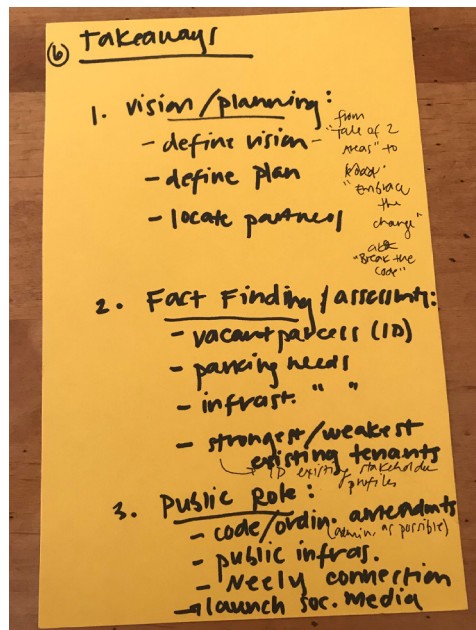 (6) Takeaways
1. vision/planning:
- define vision - from "Tale of 2 Areas" to
- define plan
"Embrace the change"
- locate partners
aka "Break the Code"
2. Fact Finding/assessmts:
- vacant parcels (ID)
- parking needs
- infrast. " "
- strongest/weakest
existing tenants
ID existing stakeholder
profiles
3. Public Role:
- code/ordin. amendmts
(admin. as possible)
- public infras.
- Neely connection
- launch soc. media